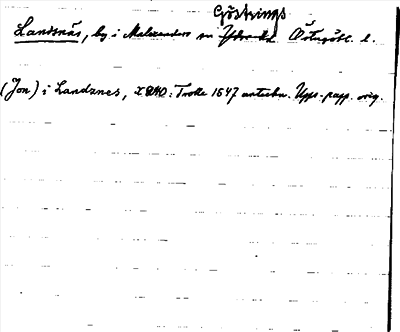 Göstrings
Landsnäs, by i Malexanders sn Östergötl. l.
(Jon) i Landznes, Trolle 1547 Upps. papp. orig.